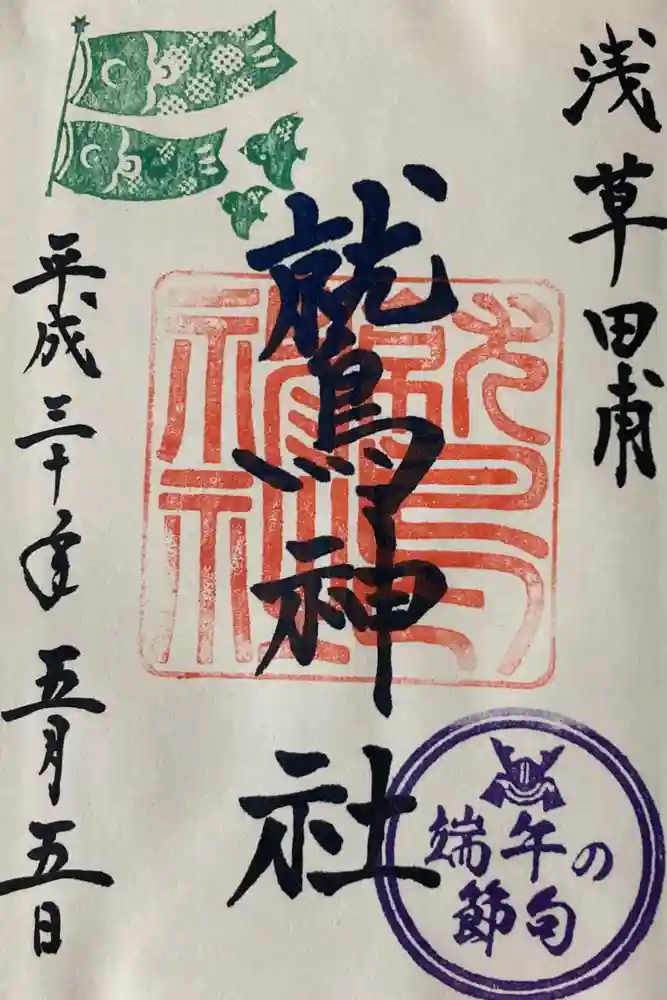 浅草田甫
鷲神社
平成三十年
五月五日
端午の
節句